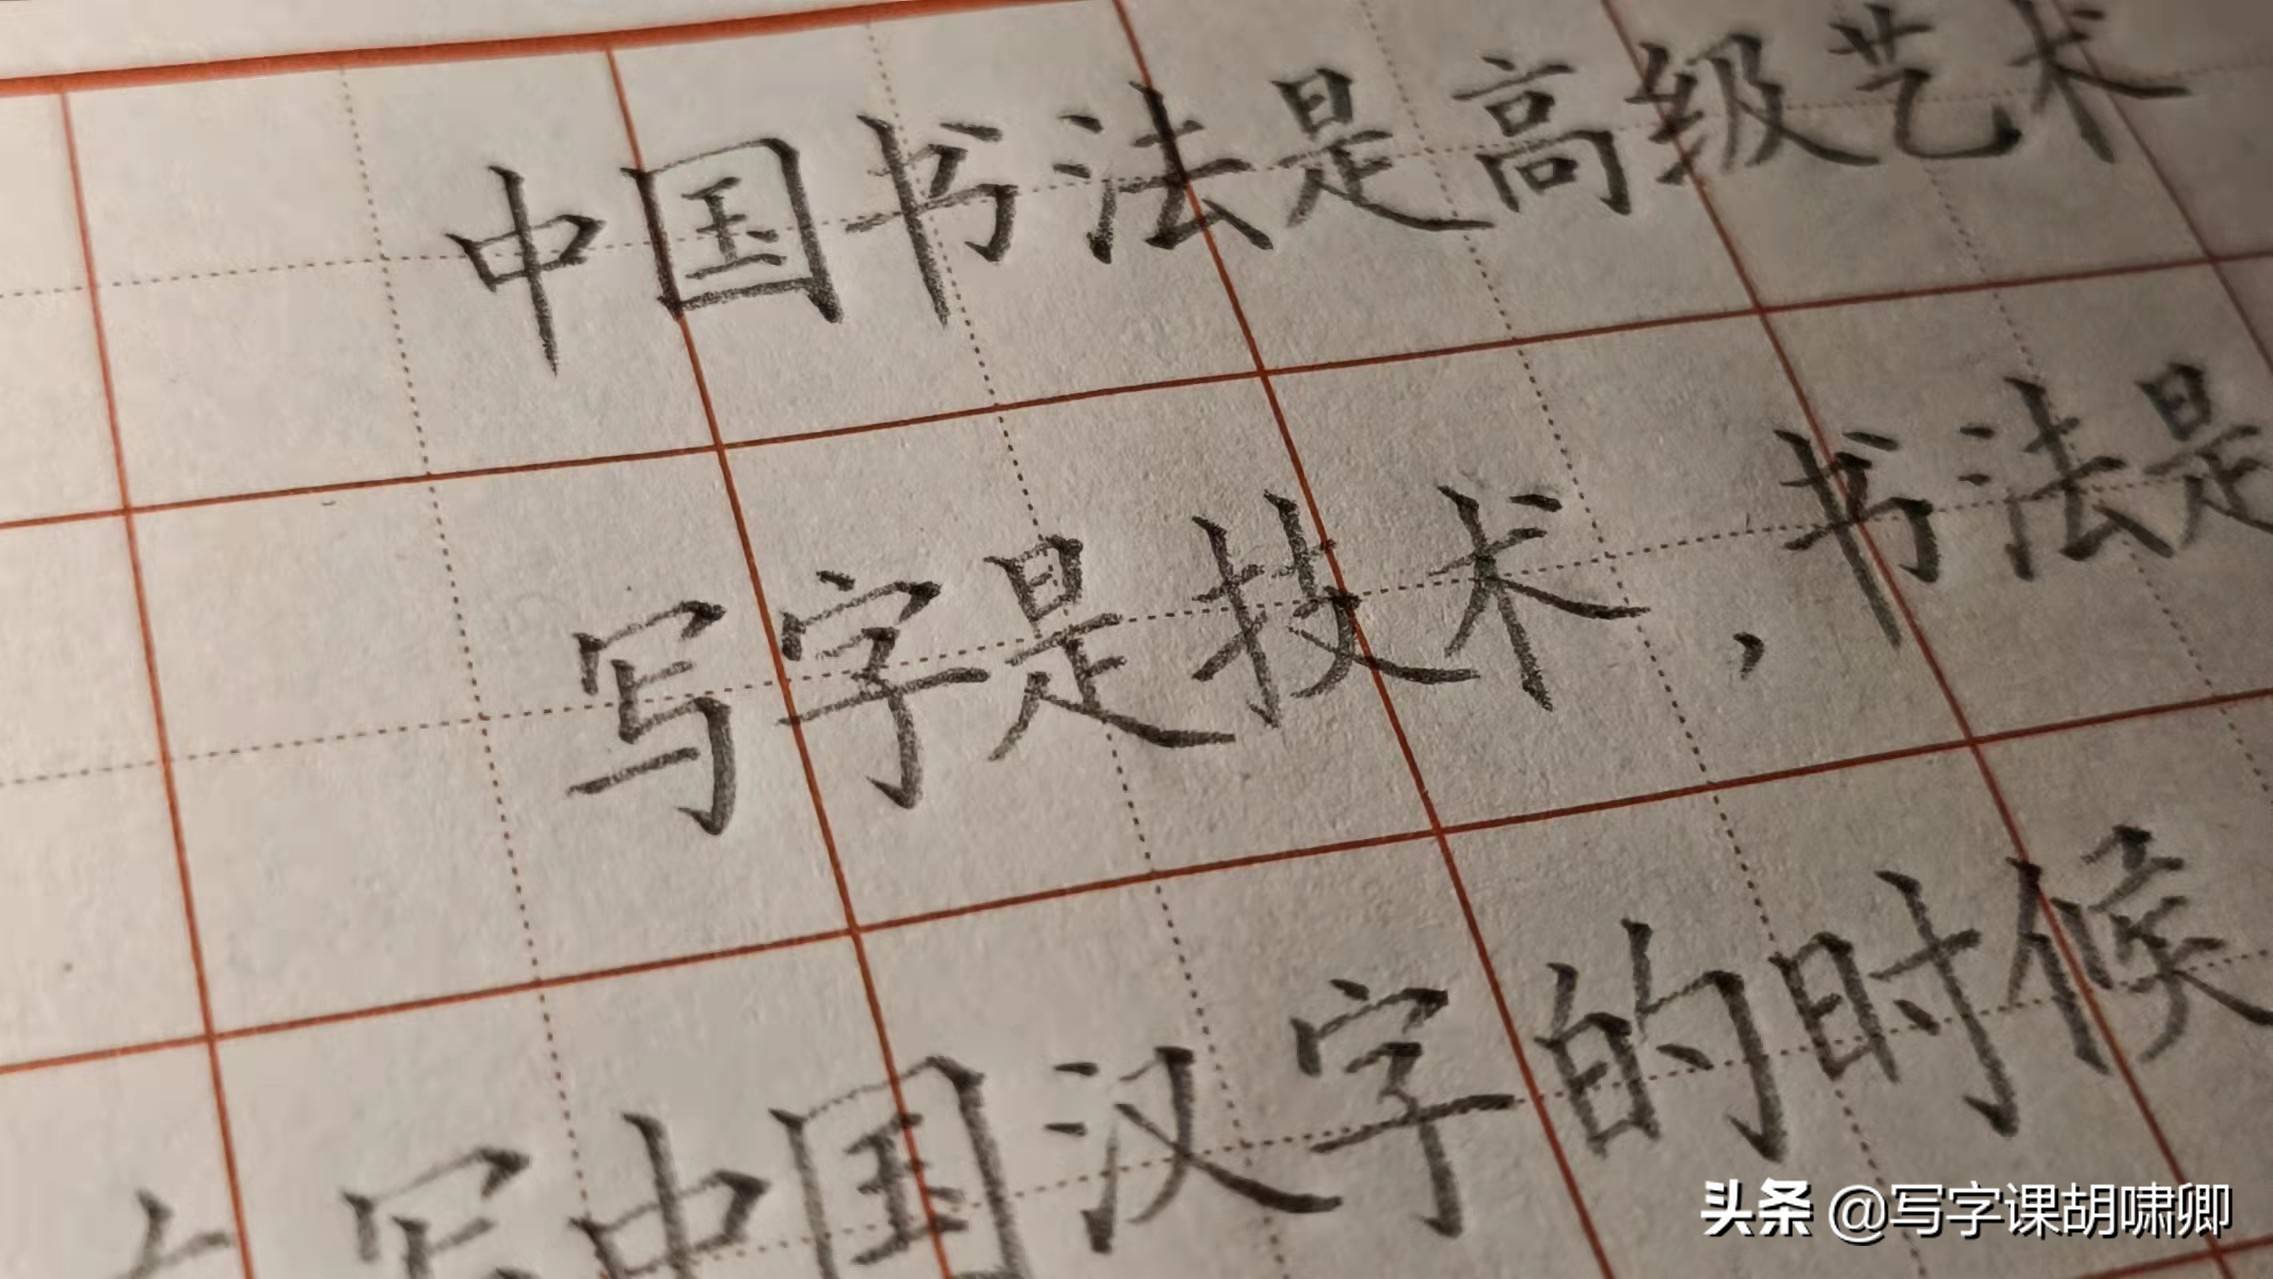 中国书法是高级艺术
写字是技术，书法是
写中国汉字的时候
头条 @写字课胡啸卿